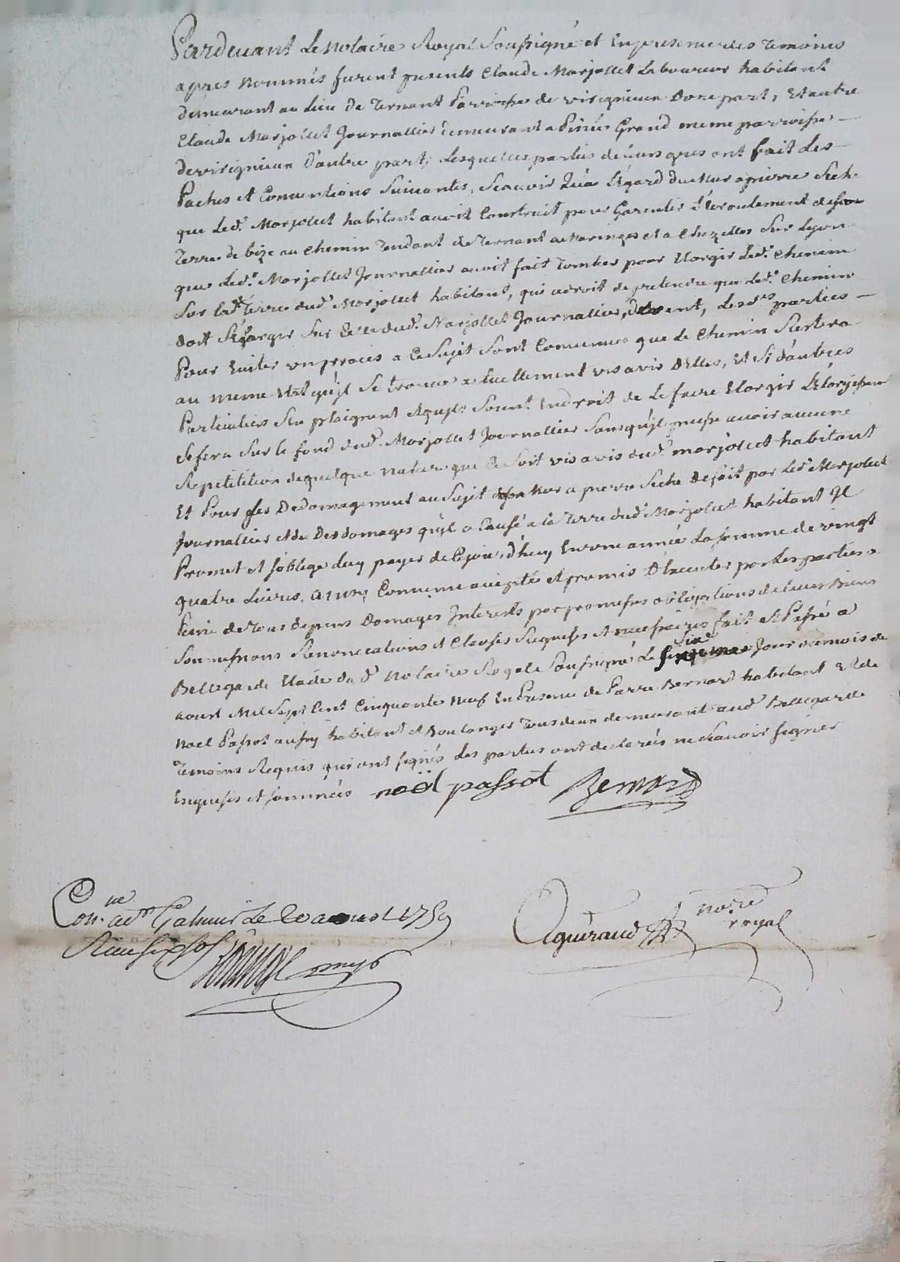 Pardevant Le Notaire Royal Soussigné et En presence des Temoins
apres Nommés furent presents Claude Marjollet Laboureur habitant
demeurant au Lieu de Ternant Parroisse de virignieux Done part, Et autre
Claude Marjollet Journallier demeurant a Pinés Grand meme parroisse
de virignieux D'autre part; Lesquelles parties de ont fait Les
Paches et Conventions Suivantes, Scavoir Qua L'Egard du Mur a pierre Seche
que Led. Marjollet habitant avoit Construit pour Garentir L'Eroulement de son
Terre de bize au Chemin Tendant de Ternant a Maringes et a Chazelles Sur Lyon
que Led. Marjollet Journallier avoit fait Tomber pour Elargir Led. Chemin
Sur lad. Terre dud. Marjollet habitant, qui que Led. Chemin
doit S'Elargir Sur Celle dud. Marjollet Journallier, Lesd. parties
Pour Eviter un proces a Ce Sujet Sont Convenues que Le Chemin Restera
au meme Etat qu'il Se trouve actuellement vis avis D'Elles, Et Si d'autres
Particuliers S'en plaignent Et qu'ils Soient En droit de Le faire Elargir L'Elargissement
Se fera Sur Le fond dud. Marjollet Journallier Sans qu'il puisse avoir aucune
Repetition de quelque Nature que Ce Soit vis avis dud. Marjollet habitant
Et Pour Les Dedomagement au Sujet Mur a pierre Seche Defait par Led. Marjollet
Journallier et de Des domages qu'il a Causé a la Terre dud. Marjollet habitant Il
Promet et S'oblige Luy payer de Ce jour d'huy En une année La Somme de vingt
quatre Livres, Convenu accepté et promis D'Executer par Les parties a
Peine de Tous depens Domages Interets par promesses obligations de Leurs Biens
Soumissions Renonciations et Clauses Requises et fait et Passé a
Bellegarde Etude du d. Notaire Royal Soussigné Le Jour du mois de
aoust Mil Sept Cent Cinquante Neuf En Presence de Pierre Bernard habitant Et de
Noel Passot aussy habitant et Boulanger Tous deux demeurant aud. Bellegarde
Temoins Requis qui ont signés Les parties ont declarés ne Scavoir signer
Enquises et sommées noël passot Bernard
Con.ne a St Galmier Le 20 aoust 1759
Aguiraud no.re royal